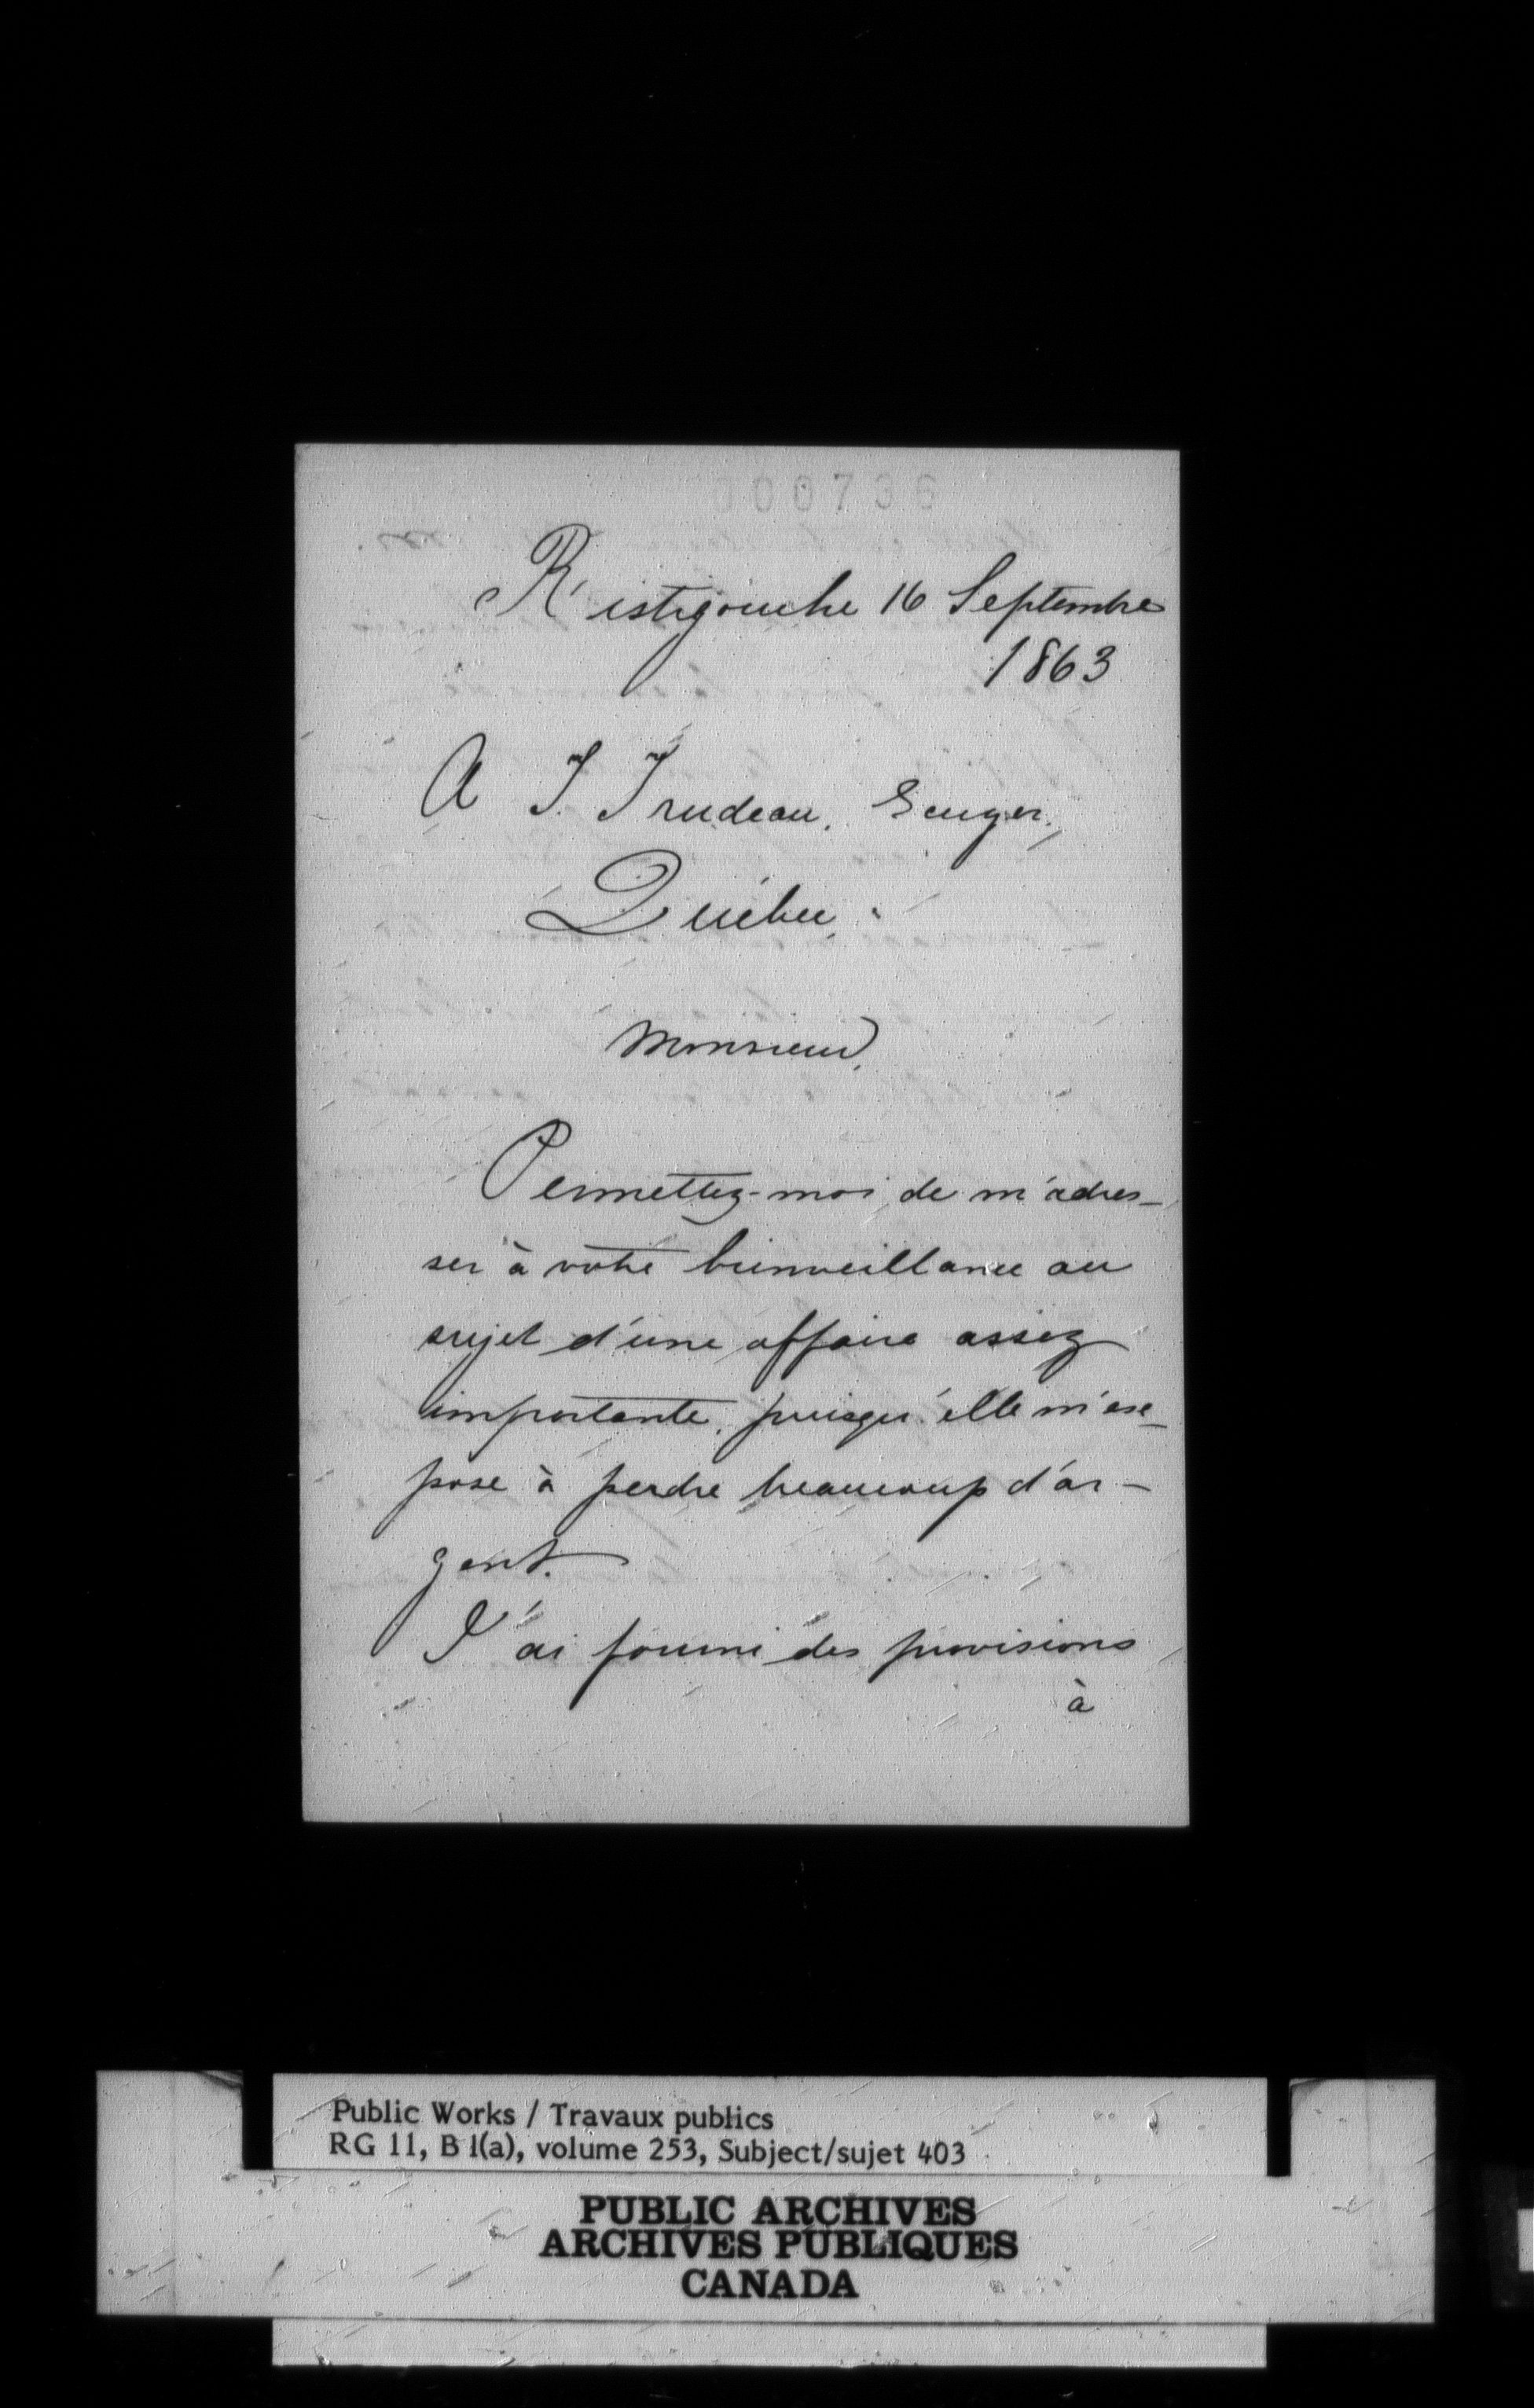 000736
Ristigouche 16 Septembre
1863
A T. Trudeau, Ecuyer,
Québec.
Monsieur,
Permettez-moi de m'adres-
ser à votre bienveillance au
sujet d'une affaire assez
importante, puisqu'elle m'ex-
pose à perdre beaucoup d'ar-
gent.
J'ai fourni des provisions
à
Public Works / Travaux publics
RG 11, B 1(a), volume 253, Subject/sujet 403
PUBLIC ARCHIVES
ARCHIVES PUBLIQUES
CANADA